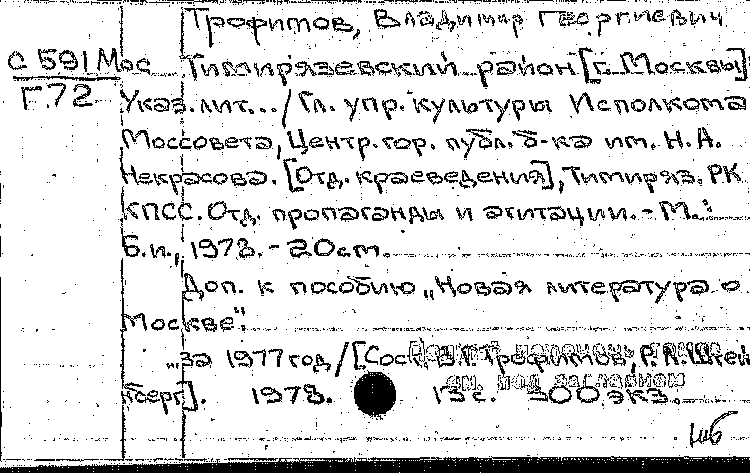 Трофимов, Владимир Георгиевич
С 591 Мос
Тимирязевский район [г. Москвы]:
Г.72
Указ. лит... / Гл. упр. культуры Исполкома
Моссовета, Центр. гор. публ. б-ка им. Н.А.
Некрасова. [Отд. краеведения], Тимиряз. РК
КПСС. Отд. пропаганды и агитации. - М.:
Б.и., 1978. - 20см.
Доп. к пособию „Новая литература о
Москве":
„за 1977 год / [Сост. В.Г. Трофимов, Р.А. Штей
нберг]. 1978. 13 с. 300 экз.
см. под заглавием
шб